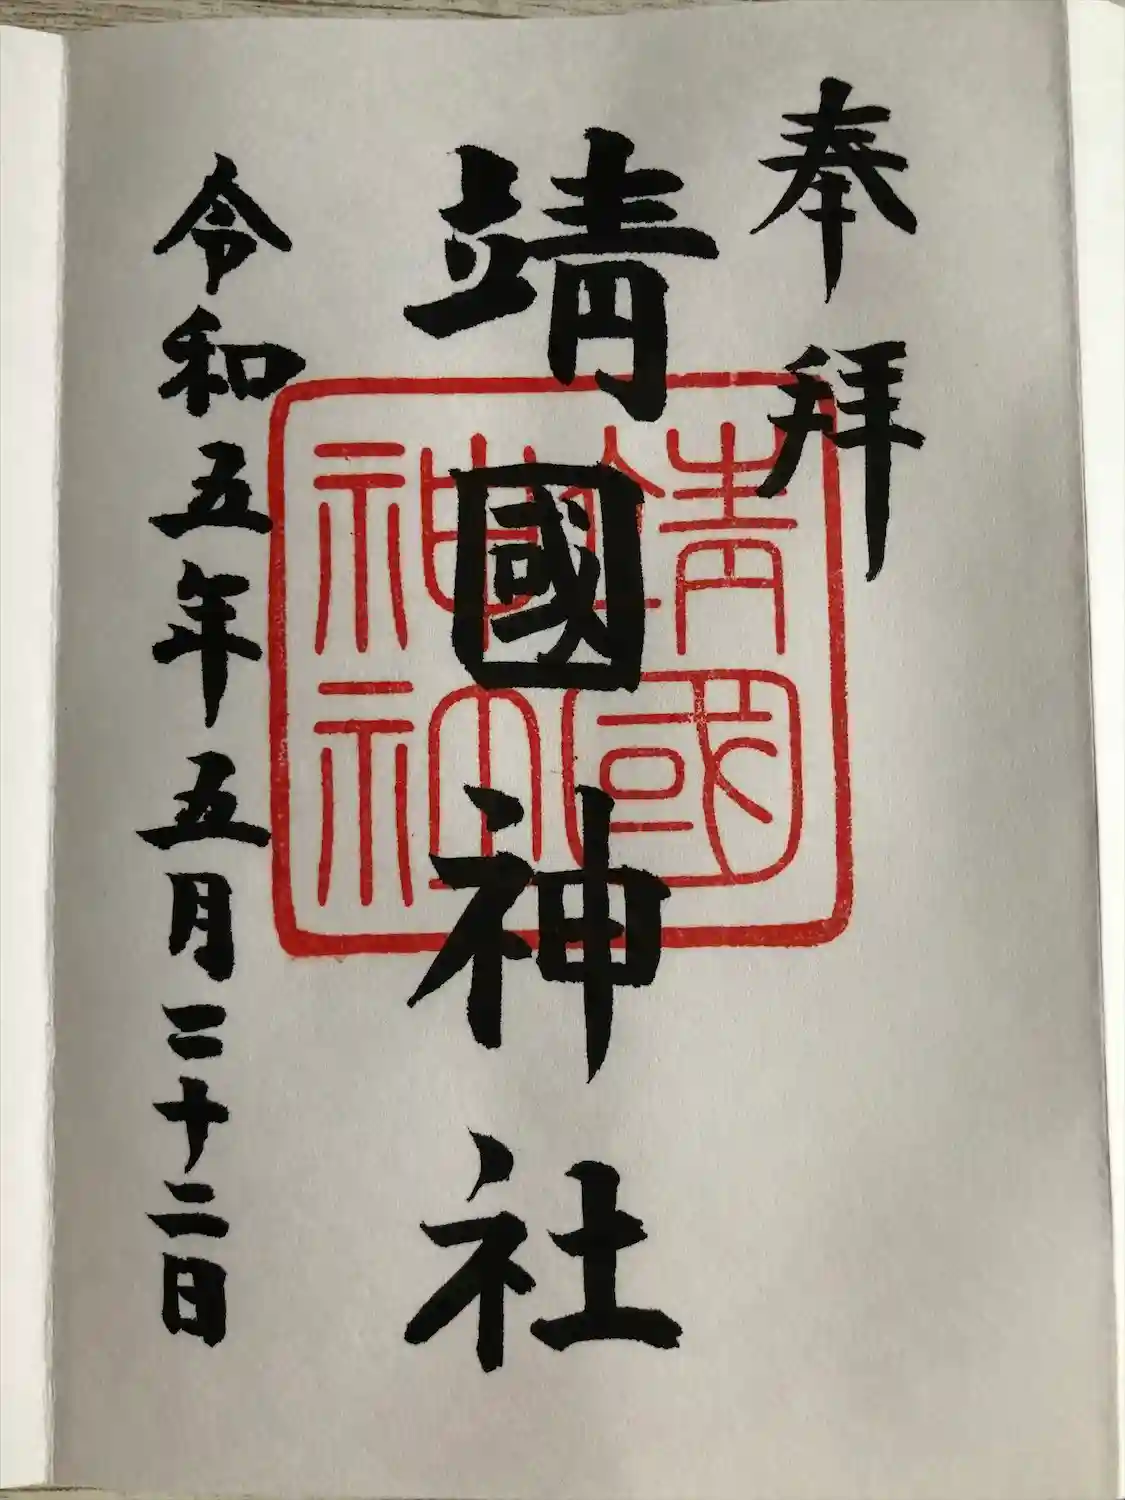 奉拝
靖國神社
靖國神社
令和五年五月二十二日